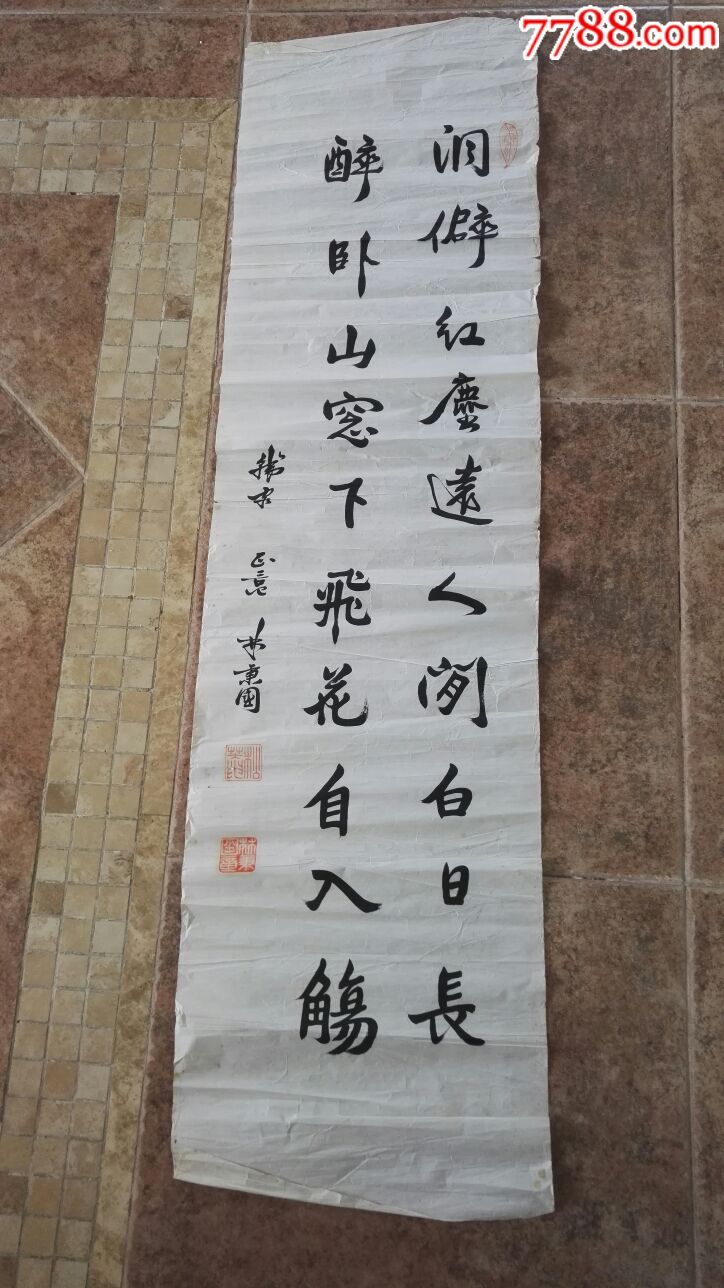 7788.com
洞僻红塵遠人閒白日長
醉卧山窓下飛花自入觴
正意 林東國